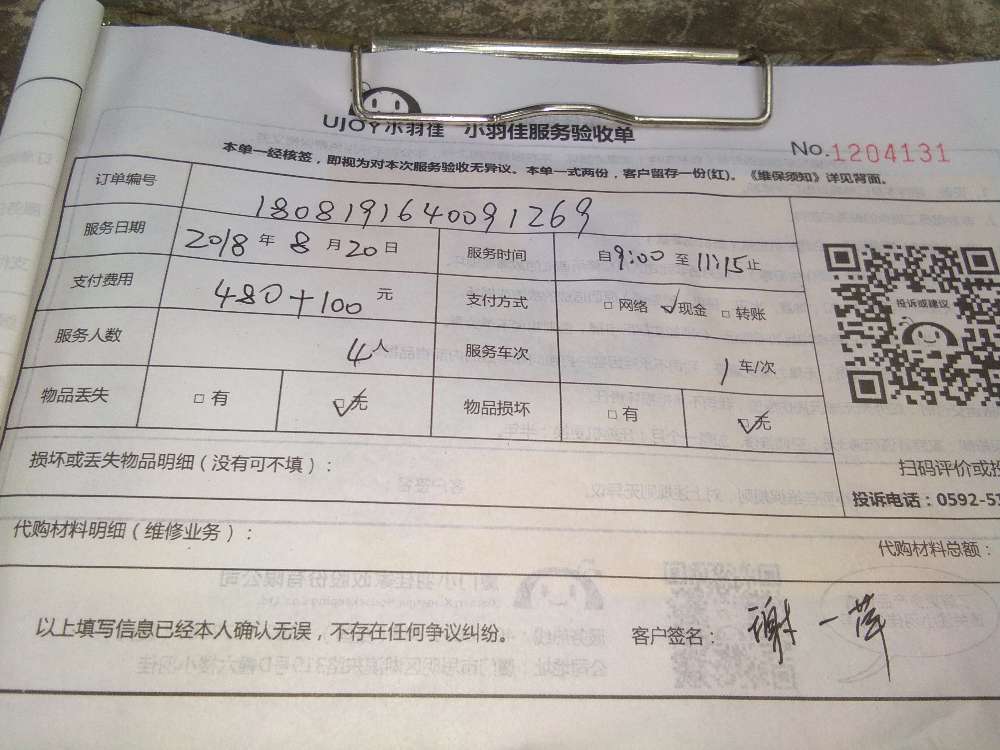 UJOY小羽佳 小羽佳服务验收单
No.1204131
本单一经核签，即视为对本次服务验收无异议。本单一式两份，客户留存一份(红)。《维保须知》详见背面。
订单编号 1808191640091269
服务日期 2018 年 8 月 20 日 服务时间 自9:00 至 11:15止
支付费用 480+100 元 支付方式 □ 网络 ✓现金 □ 转账
投诉或建议
服务人数 4人 服务车次 1 车/次
物品丢失 □ 有 ☑无 物品损坏 □ 有 ☑无
损坏或丢失物品明细（没有可不填）：
扫码评价或投
投诉电话：0592-51
代购材料明细（维修业务）：
代购材料总额：
以上填写信息已经本人确认无误，不存在任何争议纠纷。 客户签名： 谢一萍